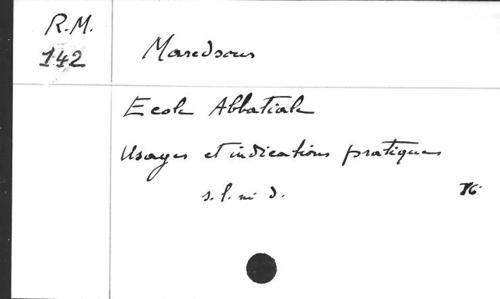 R.M.
142
Maredsous
Ecole Abbatiale
Usages et indications pratiques
s. l. ni d.